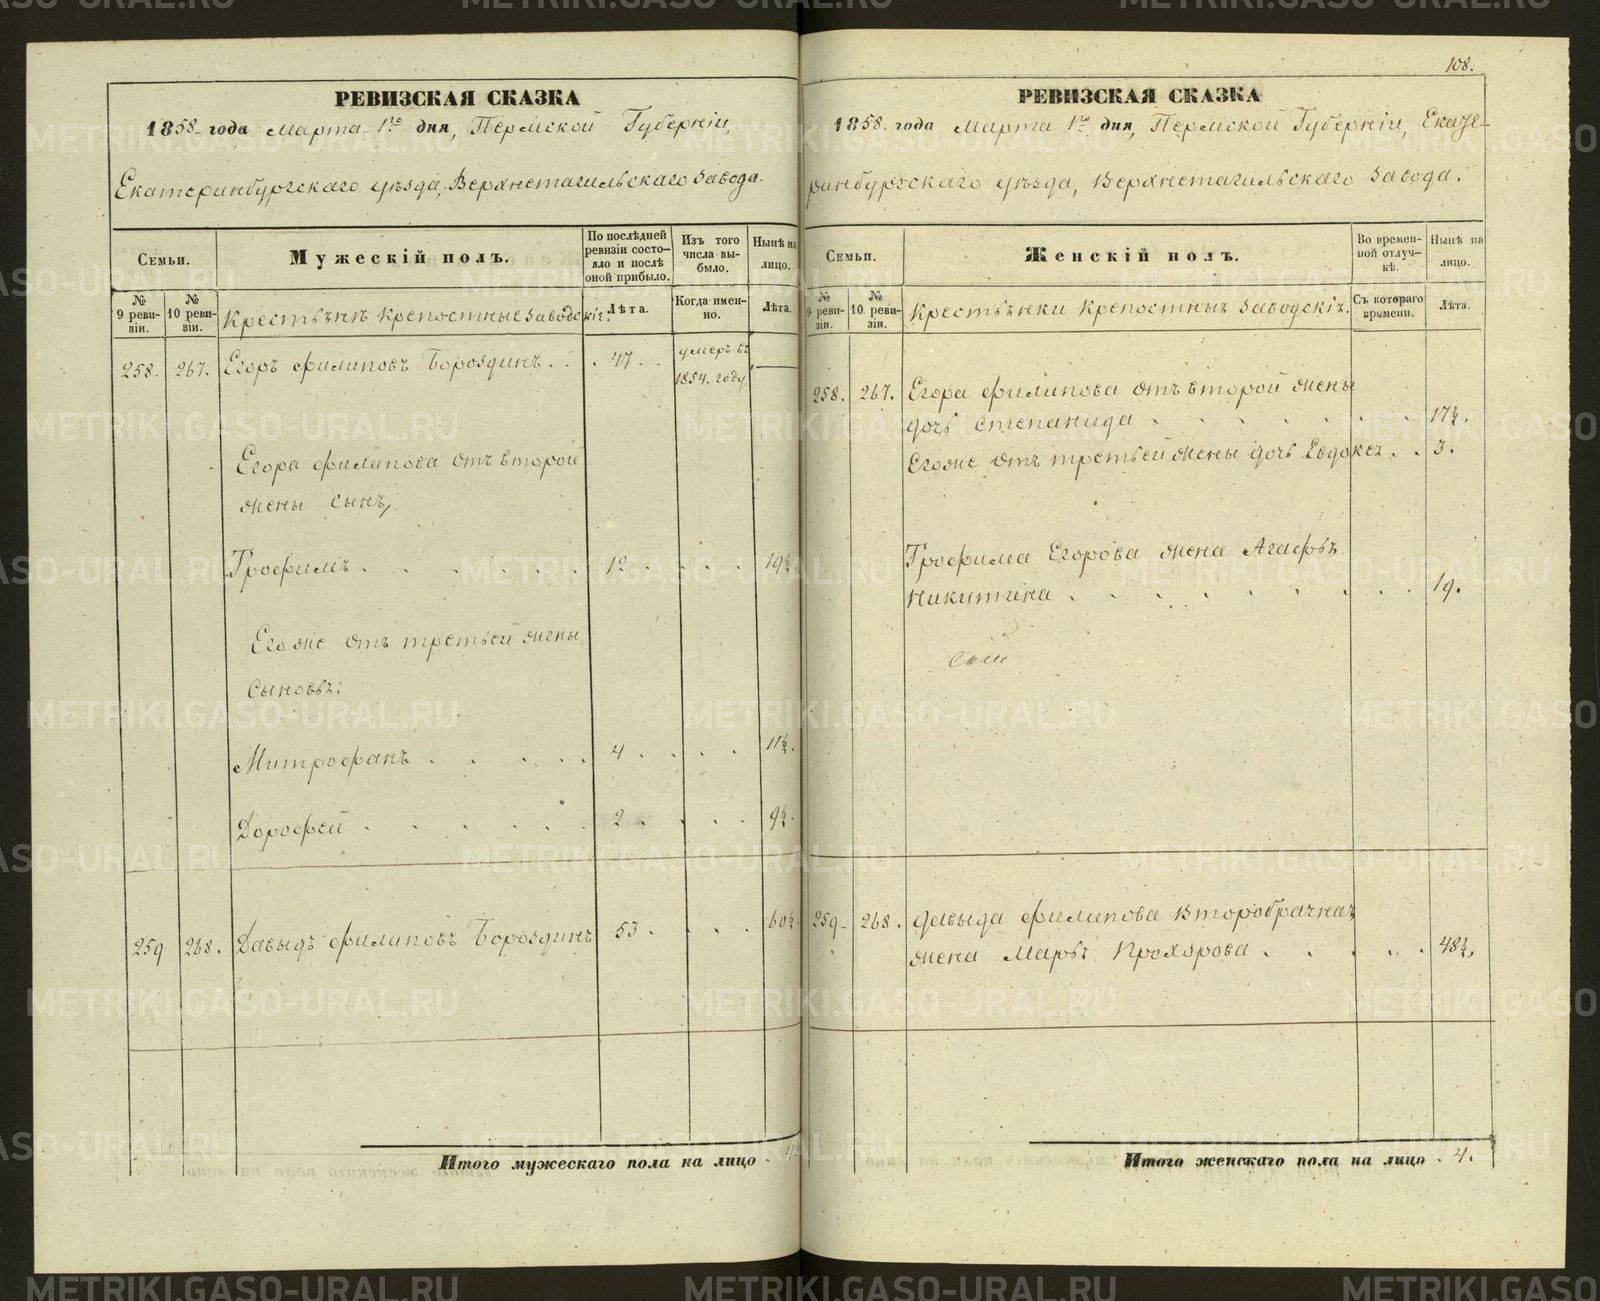 РЕВИЗСКАЯ СКАЗКА
1858 года Марта 1го дня, Пермской Губерніи,
Екатеринбургскаго уѣзда, Верхнетагильскаго Завода.
Семьи.
Мужескій полъ.
По послѣдней ревизіи состояло и послѣ оной прибыло.
Изъ того числа выбыло.
Нынѣ на лицо.
№ 9 ревизіи.
№ 10 ревизіи.
Крестьянѣ крепостные заводскіе.
Лѣта.
Когда именно.
Лѣта.
258. 267. Егоръ Филиповъ Бороздинъ . . 47. умеръ въ 1854. году
Егора Филипова отъ второй
жены сынъ,
Трофимъ . . . . . . 12 . . . . 19½.
Егоже отъ третьей жены
сыновья:
Митрофанъ . . . . . 4 . . . . 11½.
Дорофей . . . . . 2 . . . . 9½.
259 268. Давыдъ Филиповъ Бороздинъ 53 . . . 60½.
Итого мужескаго пола на лицо . 4.
108.
РЕВИЗСКАЯ СКАЗКА
1858. года Марта 1го дня, Пермской Губерніи, Екате-
ринбургскаго уѣзда, Верхнетагильскаго Завода.
Семьи.
Женскій полъ.
Во временной отлучкѣ.
Нынѣ на лицо.
№ 9 ревизіи.
№ 10 ревизіи.
Крестьянки крепостныя заводскія.
Съ котораго времени.
Лѣта.
258. 267. Егора Филипова отъ второй жены
дочь Степанида . . . . . . . 17½.
Егоже отъ третьей жены дочь Евдокея . . 3.
Трофима Егорова жена Агафья
Никитина . . . . . . . . 19.
259 268. Давыда Филипова второбрачная
жена Марья Прохорова . . . . . 48½.
Итого женскаго пола на лицо . 4.
METRIKI.GASO-URAL.RU